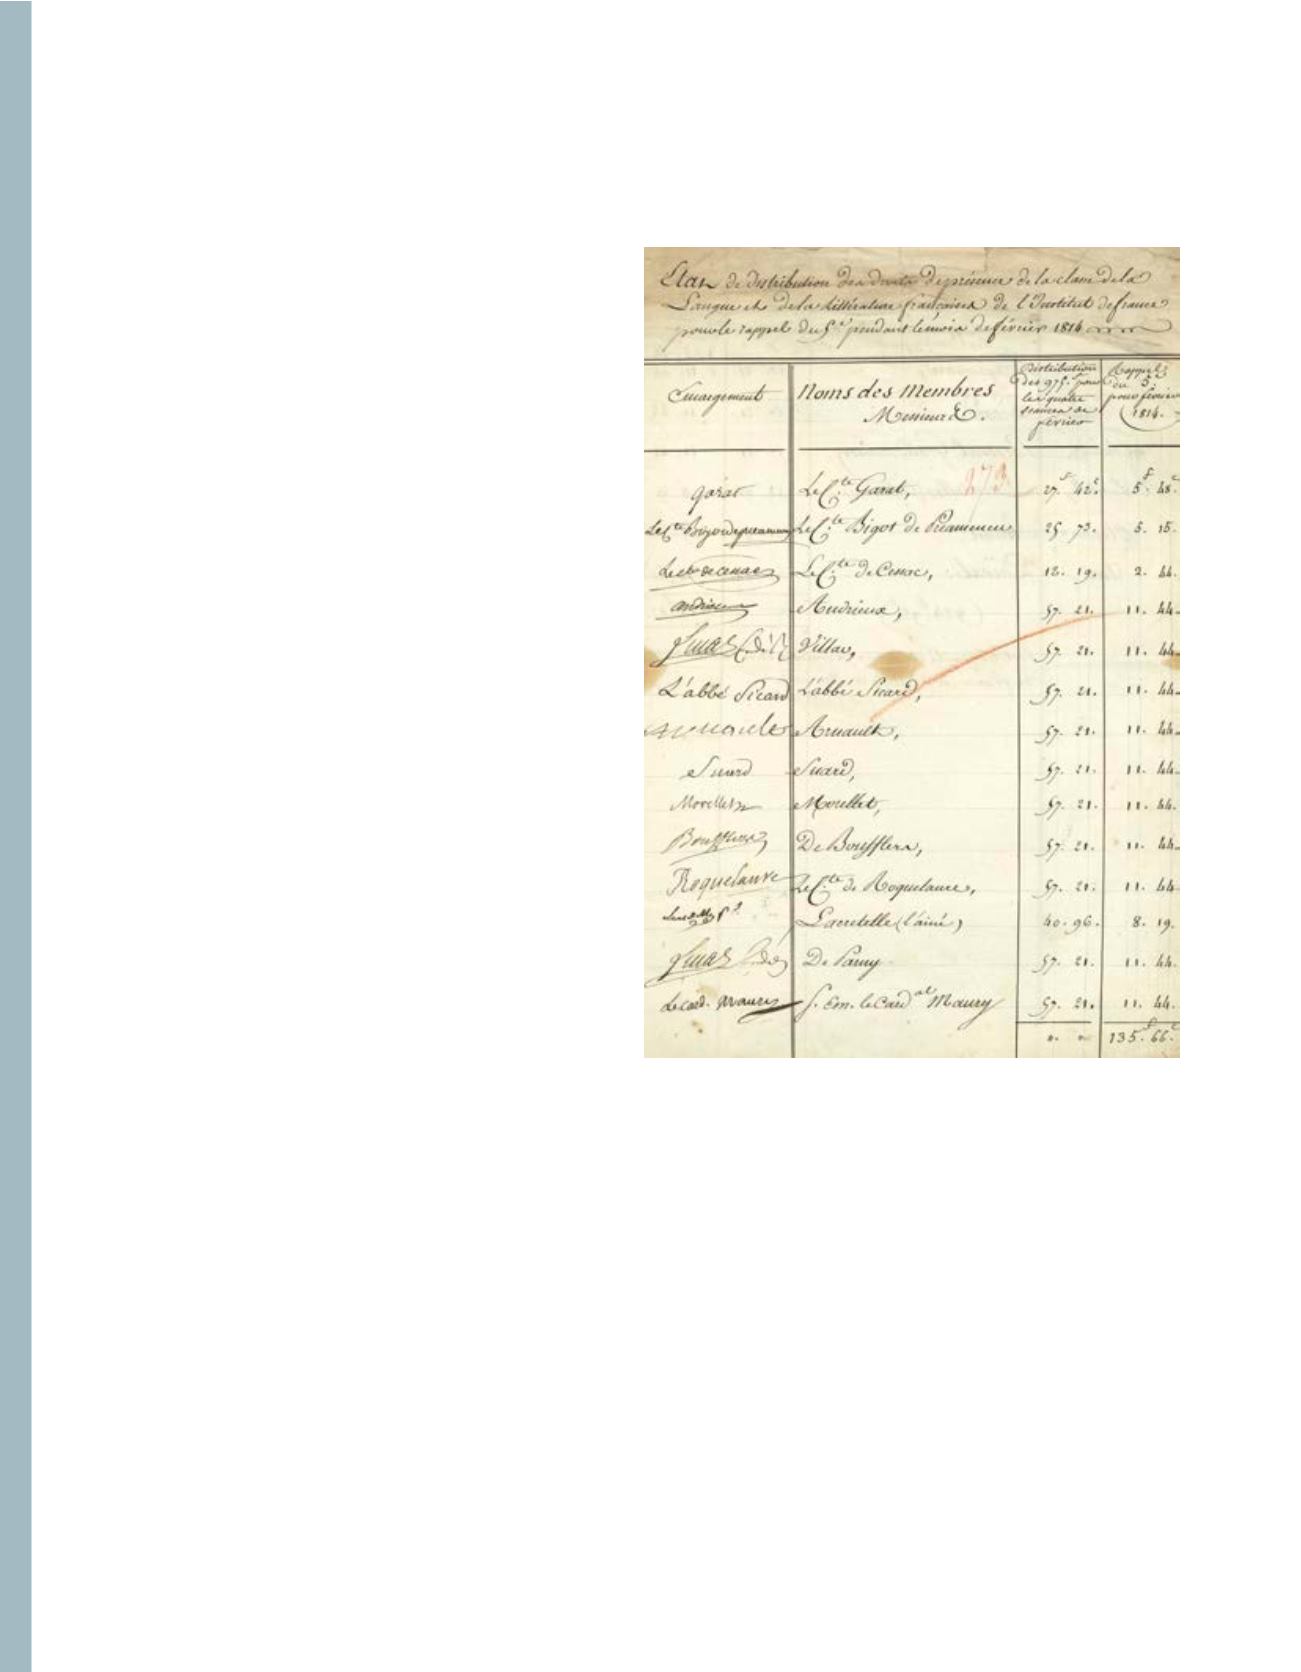 Etat de distribution des droits de présence de la classe de la
Langue et de la littérature françaises de l'Institut de france
pour le rappel du 5e. pendant le mois de février 1814
Emargement
Noms des Membres
Messieurs.
Distribution des 975.f pour les quatre séances de février
Rappel du 5e. pour février 1814.
garat Le C.te Garat, 273 27.f 42.c 5.f 48.c
Le C.te Bigot de préameneu Le C.te Bigot de Préameneu 25 73. 5. 15.
Le cte de cessac Le C.te de Cessac, 12. 19. 2. 44.
andrieux Andrieux, 57. 21. 11. 44.
Villar, 57. 21. 11. 44.
L'abbé Sicard L'abbé Sicard, 57. 21. 11. 44.
arnault Arnault, 57. 21. 11. 44.
Suard Suard, 57. 21. 11. 44.
Morellet Morellet, 57. 21. 11. 44.
Boufflers De Boufflers, 57. 21. 11. 44.
Roquelaure Le C.te de Roquelaure, 57. 21. 11. 44.
Lacretelle (l'ainé) 40. 96. 8. 19.
De Parny 57. 21. 11. 44.
Le card. Maury S. Em. le Card.al Maury 57. 21. 11. 44.
". " 135.f 66.c